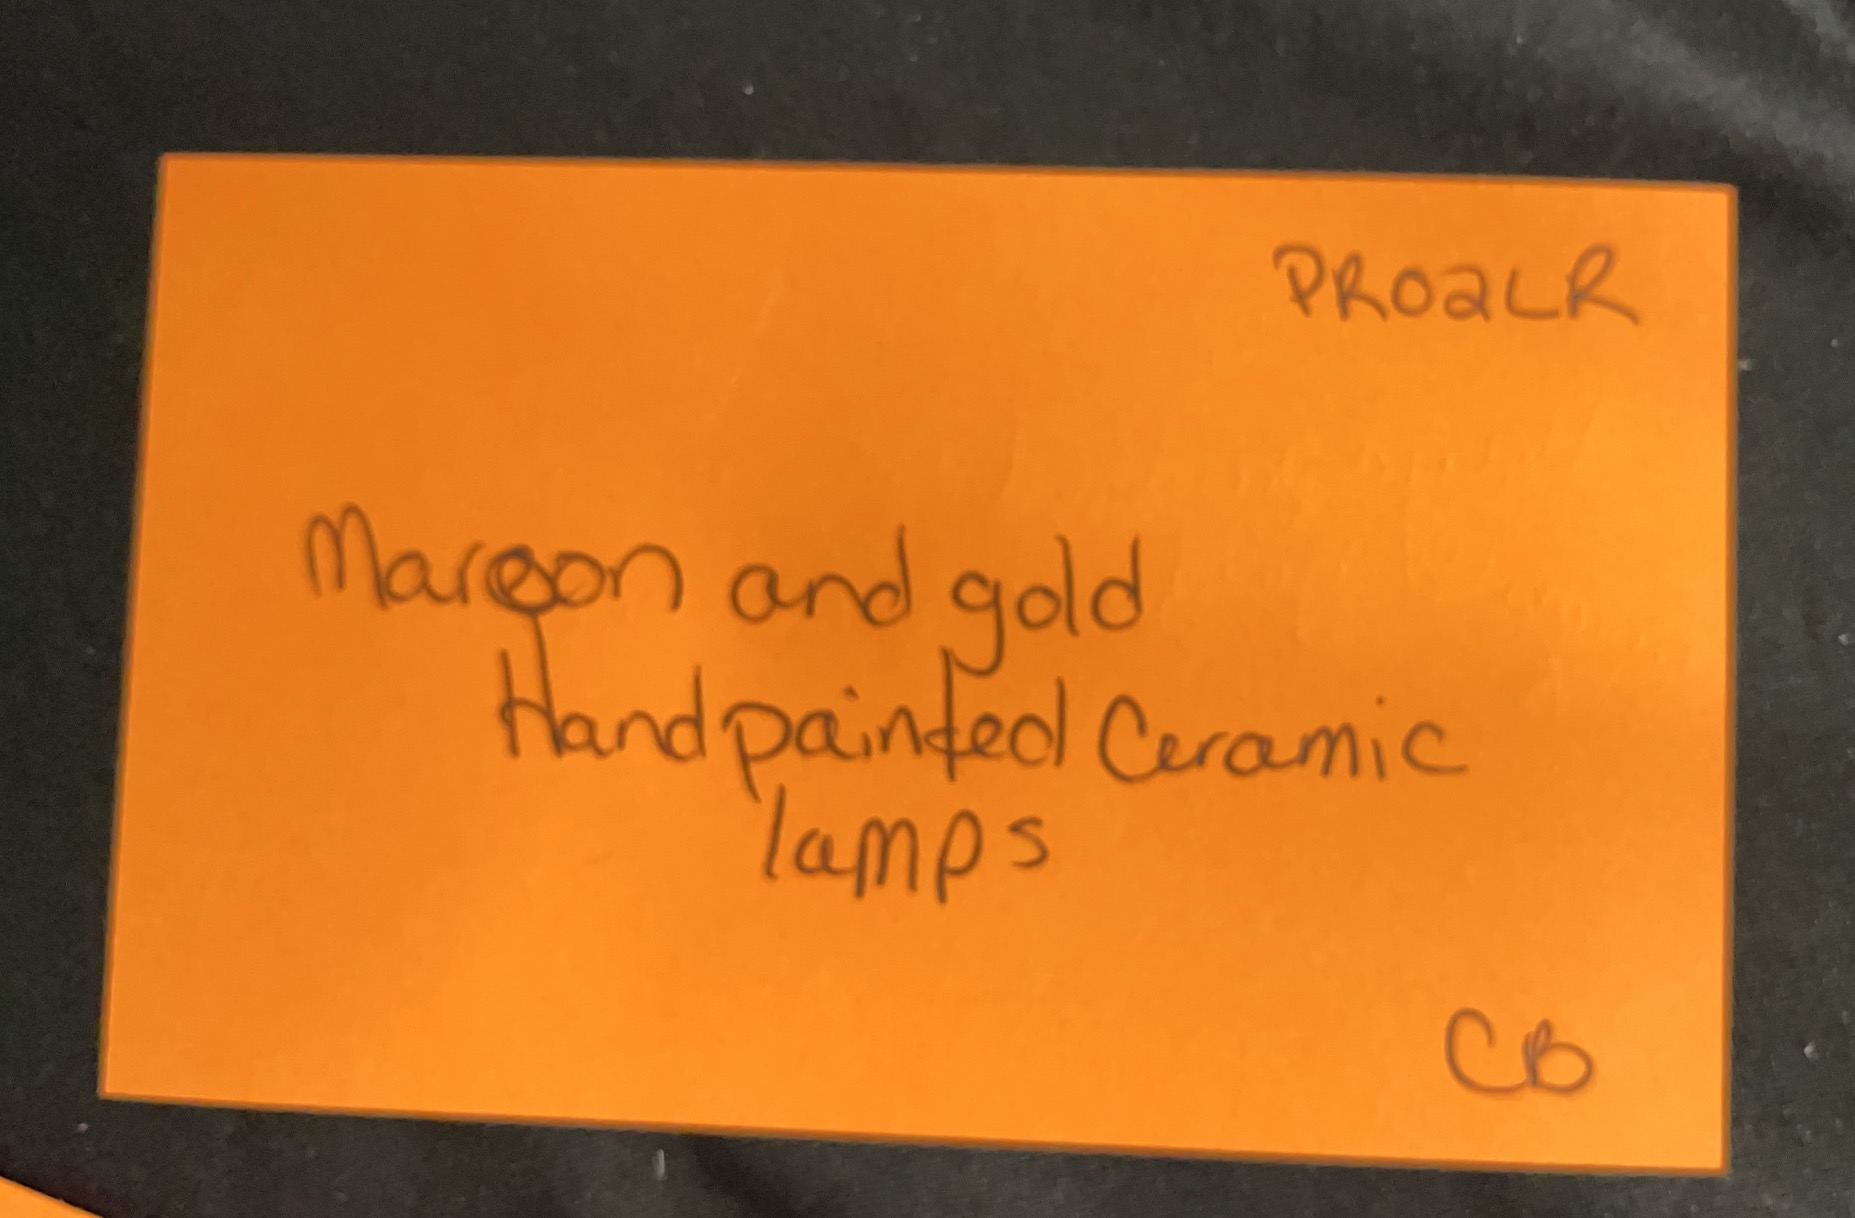 PRO2LR
Maroon and gold
Handpainted Ceramic
lamps
CB